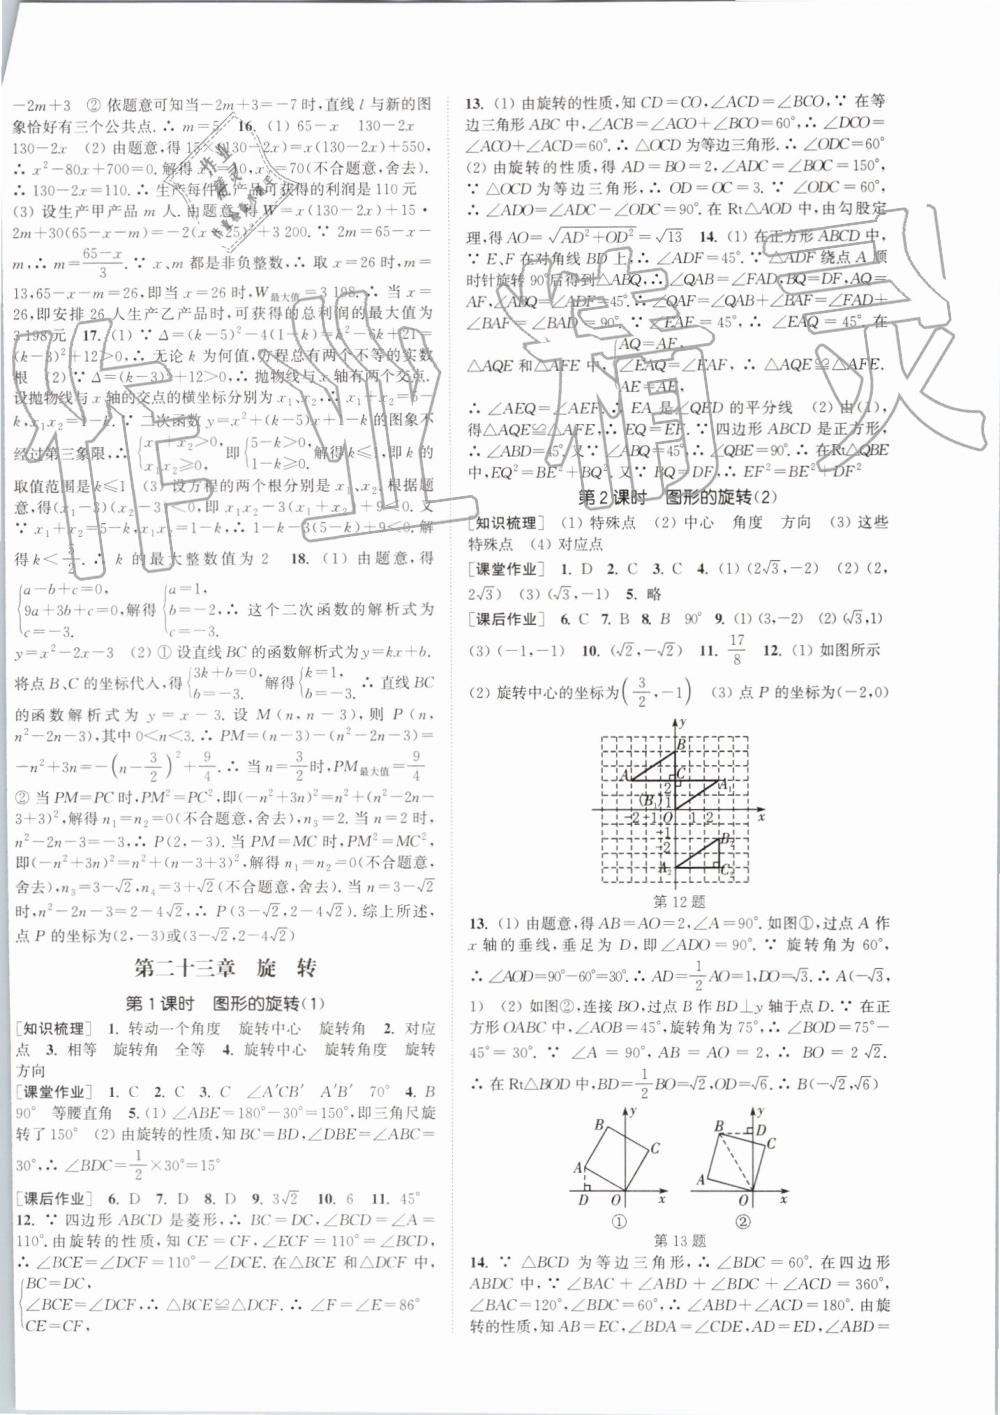 -2m+3 ② 依题意可知当-2m+3=-7时,直线 l 与新的图
象恰好有三个公共点.∴ m=5 16. (1) 65-x 130-2x
130-2x (2) 由题意,得15×(130-2x)=(130-2x)x+550,
∴ x²-80x+700=0.解得x₁=10,x₂=70(不合题意,舍去).
∴ 130-2x=110.∴ 生产每件乙产品可获得的利润是110元
(3) 设生产甲产品 m 人.由题意,得W=x(130-2x)+15·
2m+30(65-x-m)=-2(x-25)²+3 200.∵ 2m=65-x-
m,∴ m=(65-x)/3.∵ x、m 都是非负整数,∴ 取 x=26时,m=
13,65-x-m=26,即当x=26时,W最大值=3 198.∴ 当 x=
26,即安排 26 人生产乙产品时,可获得的总利润的最大值为
3 198元 17. (1) ∵ Δ=(k-5)²-4(1-k)=k²-6k+21=
(k-3)²+12>0,∴ 无论 k 为何值,方程总有两个不等的实数
根 (2) ∵ Δ=(k-3)²+12>0,∴ 抛物线与x轴有两个交点.
设抛物线与x轴的交点的横坐标分别为x₁、x₂,∴ x₁+x₂=5-
k,x₁x₂=1-k.∵ 二次函数y=x²+(k-5)x+1-k的图象不
经过第三象限,∴ {x₁+x₂>0, x₁x₂≥0, 即{5-k>0, 1-k≥0. 解得k≤1,即k的
取值范围是k≤1 (3) 设方程的两个根分别是 x₁、x₂.根据题
意,得(x₁-3)(x₂-3)<0,即 x₁x₂-3(x₁+x₂)+9<0.又
∵ x₁+x₂=5-k,x₁x₂=1-k,∴ 1-k-3(5-k)+9<0.解
得k<5/2.∴ k 的最大整数值为 2 18. (1) 由题意,得
{a-b+c=0, 9a+3b+c=0, c=-3. 解得{a=1, b=-2, c=-3. ∴ 这个二次函数的解析式为
y=x²-2x-3 (2) ① 设直线BC的函数解析式为y=kx+b.
将点B、C的坐标代入,得{3k+b=0, b=-3. 解得{k=1, b=-3. ∴ 直线BC
的函数解析式为 y=x-3.设 M(n,n-3),则 P(n,
n²-2n-3),其中0<n<3.∴ PM=(n-3)-(n²-2n-3)=
-n²+3n=-(n-3/2)²+9/4.∴ 当n=3/2时,PM最大值=9/4
② 当PM=PC时,PM²=PC²,即(-n²+3n)²=n²+(n²-2n-
3+3)²,解得n₁=n₂=0(不合题意,舍去),n₃=2.当n=2时,
n²-2n-3=-3,∴ P(2,-3).当PM=MC时,PM²=MC²,
即(-n²+3n)²=n²+(n-3+3)²,解得n₁=n₂=0(不合题意,
舍去),n₃=3-√2,n₄=3+√2(不合题意,舍去).当n=3-√2
时,n²-2n-3=2-4√2,∴ P(3-√2,2-4√2).综上所述,
点P的坐标为(2,-3)或(3-√2,2-4√2)
第二十三章 旋 转
第1课时 图形的旋转(1)
[知识梳理] 1. 转动一个角度 旋转中心 旋转角 2. 对应
点 3. 相等 旋转角 全等 4. 旋转中心 旋转角度 旋转
方向
[课堂作业] 1. C 2. C 3. C ∠A'CB' A'B' 70° 4. B
90° 等腰直角 5. (1) ∠ABE=180°-30°=150°,即三角尺旋
转了150° (2) 由旋转的性质,知BC=BD,∠DBE=∠ABC=
30°,∴ ∠BDC=1/2×30°=15°
[课后作业] 6. D 7. D 8. D 9. 3√2 10. 6 11. 45°
12. ∵ 四边形 ABCD 是菱形,∴ BC=DC,∠BCD=∠A=
110°.由旋转的性质,知 CE=CF,∠ECF=110°=∠BCD,
∴ ∠BCE=∠DCF=110°-∠DCE.在△BCE 和△DCF中,
{BC=DC,
∠BCE=∠DCF,∴ △BCE≌△DCF.∴ ∠F=∠E=86°
CE=CF,
13. (1) 由旋转的性质,知 CD=CO,∠ACD=∠BCO.∵ 在等
边三角形 ABC 中,∠ACB=∠ACO+∠BCO=60°,∴ ∠DCO=
∠ACO+∠ACD=60°.∴ △OCD为等边三角形.∴ ∠ODC=60°
(2) 由旋转的性质,得 AD=BO=2,∠ADC=∠BOC=150°,
∵ △OCD为等边三角形,∴ OD=OC=3.∵ ∠ODC=60°,
∴ ∠ADO=∠ADC-∠ODC=90°.在Rt△AOD中,由勾股定
理,得AO=√(AD²+OD²)=√13 14. (1) 在正方形ABCD中,
∵ E、F在对角线BD上,∴ ∠ADF=45°.∵ △ADF绕点A顺
时针旋转90°后得到△ABQ,∴ ∠QAB=∠FAD,BQ=DF,AQ=
AF,∠ABQ=∠ADF=45°.∴ ∠QAF=∠QAB+∠BAF=∠FAD+
∠BAF=∠BAD=90°.∵ ∠EAF=45°,∴ ∠EAQ=45°.在
△AQE和△AFE中,{AQ=AF, ∠EAQ=∠EAF, AE=AE, ∴ △AQE≌△AFE.
∴ ∠AEQ=∠AEF.∴ EA是∠QED的平分线 (2) 由(1),
得△AQE≌△AFE,∴ EQ=EF.∵ 四边形ABCD是正方形,
∴ ∠ABD=45°.又∵ ∠ABQ=45°,∴ ∠QBE=90°.∴ 在Rt△QBE
中,EQ²=BE²+BQ².又∵ BQ=DF,∴ EF²=BE²+DF²
第2课时 图形的旋转(2)
[知识梳理] (1) 特殊点 (2) 中心 角度 方向 (3) 这些
特殊点 (4) 对应点
[课堂作业] 1. D 2. C 3. C 4. (1) (2√3,-2) (2) (2,
2√3) (3) (√3,-1) 5. 略
[课后作业] 6. C 7. B 8. B 90° 9. (1) (3,-2) (2) (√3,1)
(3) (-1,-1) 10. (√2,-√2) 11. 17/8 12. (1) 如图所示
(2) 旋转中心的坐标为(3/2,-1) (3) 点P的坐标为(-2,0)
y
B
A C A₁
2
(B₁) 1
-2 -1 O 1 2 x
-1
-2 B₂
A₂ C₂
第12题
13. (1) 由题意,得AB=AO=2,∠A=90°.如图①,过点A作
x轴的垂线,垂足为D,即∠ADO=90°.∵ 旋转角为60°,
∴ ∠AOD=90°-60°=30°.∴ AD=1/2AO=1,DO=√3.∴ A(-√3,
1) (2) 如图②,连接BO,过点B作BD⊥y轴于点D.∵ 在正
方形OABC中,∠AOB=45°,旋转角为75°,∴ ∠BOD=75°-
45°=30°.∵ ∠A=90°,AB=AO=2,∴ BO=2√2.
∴ 在Rt△BOD中,BD=1/2BO=√2,OD=√6.∴ B(-√2,√6)
y B C A D O x ①
y B D C A O x ②
第13题
14. ∵ △BCD 为等边三角形,∴ ∠BDC=60°.在四边形
ABDC中,∵ ∠BAC+∠ABD+∠BDC+∠ACD=360°,
∠BAC=120°,∠BDC=60°,∴ ∠ABD+∠ACD=180°.由旋
转的性质,知AB=EC,∠BDA=∠CDE,AD=ED,∠ABD=
作业精灵